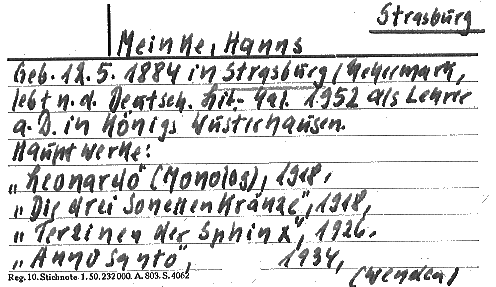 Strasburg
Meinke, Hanns
Geb. 12.5. 1884 in Strasburg/Uckermark,
lebt n. d. Deutsch. Lit.-Kal. 1952 als Lehrer
a.D. in Königs Wusterhausen.
Hauptwerke:
„Leonardo" (Monolog), 1918.
„Die drei Sonettenkränze", 1918,
„Terzinen der Sphinx", 1926.
„Anno Santo", 1934,
(wenden)
Reg. 10. Stichnote. 1. 50. 232000. A. 803. S. 4062